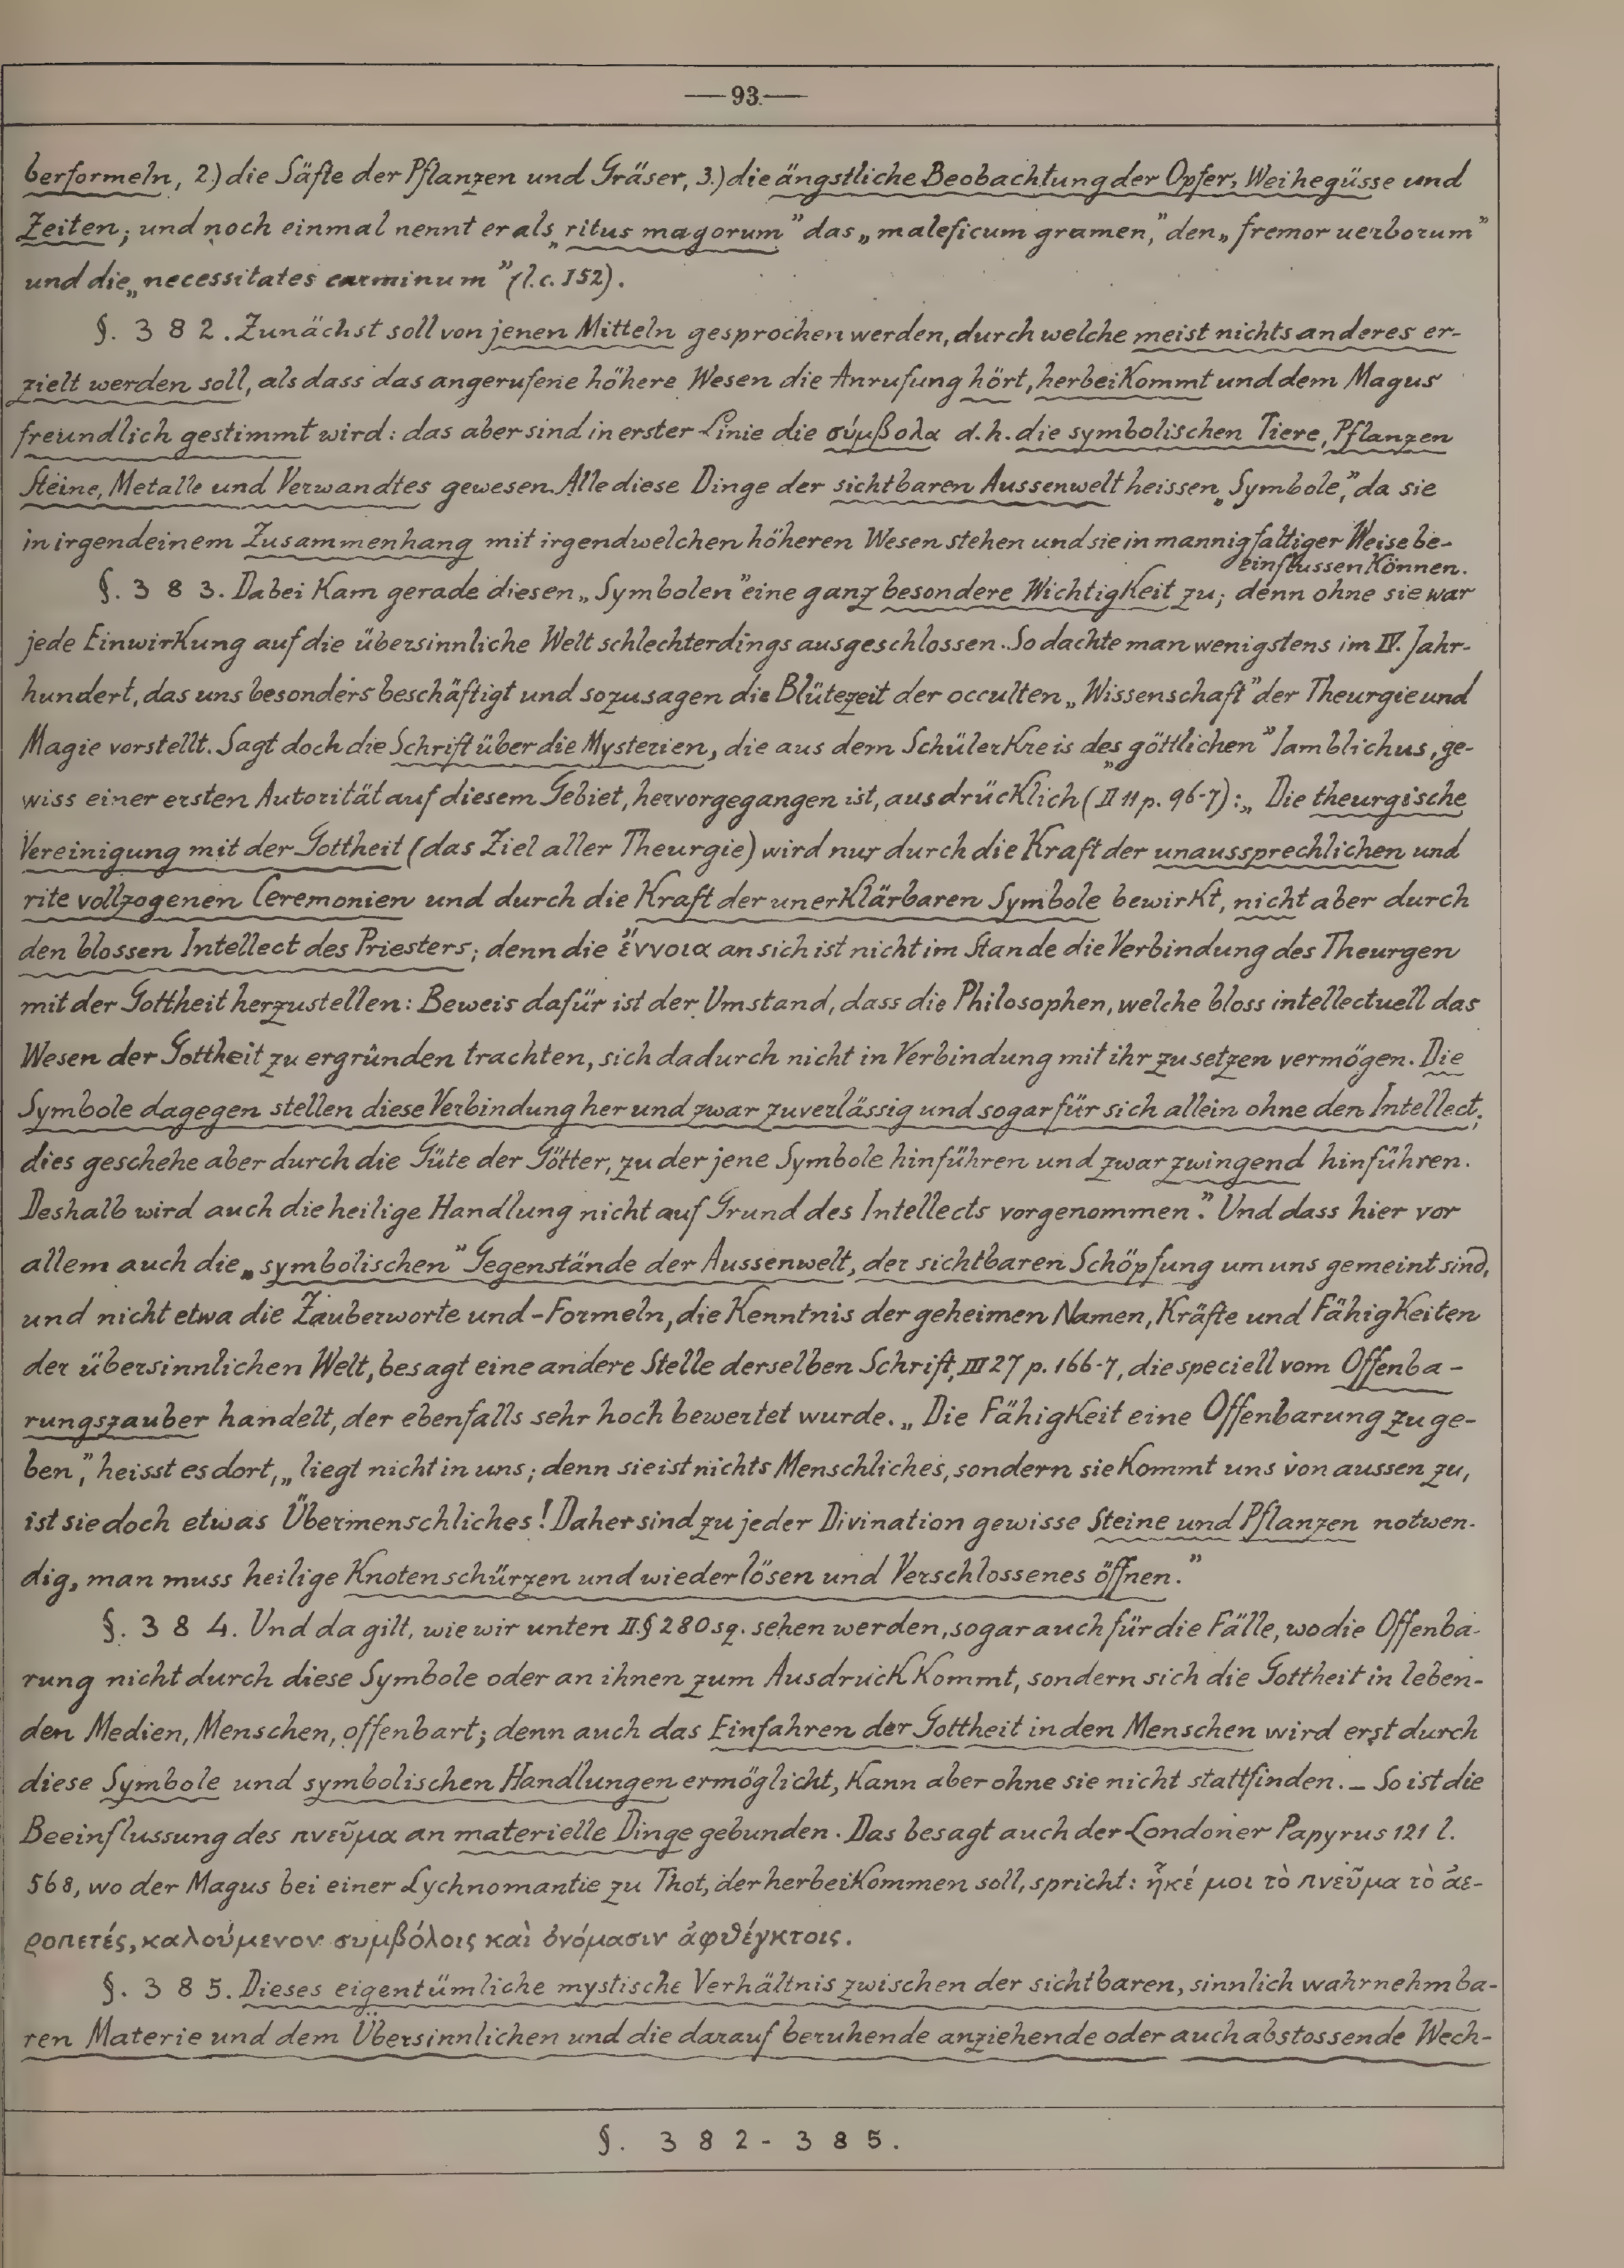 —93.—
berformeln, 2.) die Säfte der Pflanzen und Gräser, 3.) die ängstliche Beobachtung der Opfer, Weihegüsse und
Zeiten; und noch einmal nennt er als „ritus magorum” das „maleficum gramen,” den „fremor verborum”
und die „necessitates carminum” (l.c. 152).
§. 3 8 2. Zunächst soll von jenen Mitteln gesprochen werden, durch welche meist nichts anderes er-
zielt werden soll, als dass das angerufene höhere Wesen die Anrufung hört, herbeikommt und dem Magus
freundlich gestimmt wird: das aber sind in erster Linie die σύμβολα d.h. die symbolischen Tiere, Pflanzen
Steine, Metalle und Verwandtes gewesen. Alle diese Dinge der sichtbaren Aussenwelt heissen „Symbole,” da sie
in irgendeinem Zusammenhang mit irgendwelchen höheren Wesen stehen und sie in mannigfaltiger Weise be-
einflussen können.
§. 3 8 3. Dabei kam gerade diesen „Symbolen” eine ganz besondere Wichtigkeit zu; denn ohne sie war
jede Einwirkung auf die übersinnliche Welt schlechterdings ausgeschlossen. So dachte man wenigstens im IV. Jahr-
hundert, das uns besonders beschäftigt und sozusagen die Blütezeit der occulten „Wissenschaft” der Theurgie und
Magie vorstellt. Sagt doch die Schrift über die Mysterien, die aus dem Schülerkreis des „göttlichen” Iamblichus, ge-
wiss einer ersten Autorität auf diesem Gebiet, hervorgegangen ist, ausdrücklich (II 11 p. 96-7): „Die theurgische
Vereinigung mit der Gottheit (das Ziel aller Theurgie) wird nur durch die Kraft der unaussprechlichen und
rite vollzogenen Ceremonien und durch die Kraft der unerklärbaren Symbole bewirkt, nicht aber durch
den blossen Intellect des Priesters; denn die ἔννοια an sich ist nicht im Stande die Verbindung des Theurgen
mit der Gottheit herzustellen: Beweis dafür ist der Umstand, dass die Philosophen, welche bloss intellectuell das
Wesen der Gottheit zu ergründen trachten, sich dadurch nicht in Verbindung mit ihr zu setzen vermögen. Die
Symbole dagegen stellen diese Verbindung her und zwar zuverlässig und sogar für sich allein ohne den Intellect;
dies geschehe aber durch die Güte der Götter, zu der jene Symbole hinführen und zwar zwingend hinführen.
Deshalb wird auch die heilige Handlung nicht auf Grund des Intellects vorgenommen.” Und dass hier vor
allem auch die „symbolischen” Gegenstände der Aussenwelt, der sichtbaren Schöpfung um uns gemeint sind,
und nicht etwa die Zauberworte und -Formeln, die Kenntnis der geheimen Namen, Kräfte und Fähigkeiten
der übersinnlichen Welt, besagt eine andere Stelle derselben Schrift, III 27 p. 166-7, die speciell vom Offenba-
rungszauber handelt, der ebenfalls sehr hoch bewertet wurde. „Die Fähigkeit eine Offenbarung zu ge-
ben,” heisst es dort, „liegt nicht in uns; denn sie ist nichts Menschliches, sondern sie kommt uns von aussen zu,
ist sie doch etwas Übermenschliches! Daher sind zu jeder Divination gewisse Steine und Pflanzen notwen-
dig, man muss heilige Knoten schürzen und wieder lösen und Verschlossenes öffnen.”
§. 3 8 4. Und da gilt, wie wir unten II. § 280 sq. sehen werden, sogar auch für die Fälle, wo die Offenba-
rung nicht durch diese Symbole oder an ihnen zum Ausdruck kommt, sondern sich die Gottheit in leben-
den Medien, Menschen, offenbart; denn auch das Einfahren der Gottheit in den Menschen wird erst durch
diese Symbole und symbolischen Handlungen ermöglicht, kann aber ohne sie nicht stattfinden. — So ist die
Beeinflussung des πνεῦμα an materielle Dinge gebunden. Das besagt auch der Londoner Papyrus 121 l.
568, wo der Magus bei einer Lychnomantie zu Thot, der herbeikommen soll, spricht: ἧκέ μοι τὸ πνεῦμα τὸ ἀε-
ροπετές, καλούμενον συμβόλοις καὶ ὀνόμασιν ἀφθέγκτοις.
§. 3 8 5. Dieses eigentümliche mystische Verhältnis zwischen der sichtbaren, sinnlich wahrnehmba-
ren Materie und dem Übersinnlichen und die darauf beruhende anziehende oder auch abstossende Wech-
§. 3 8 2 - 3 8 5.